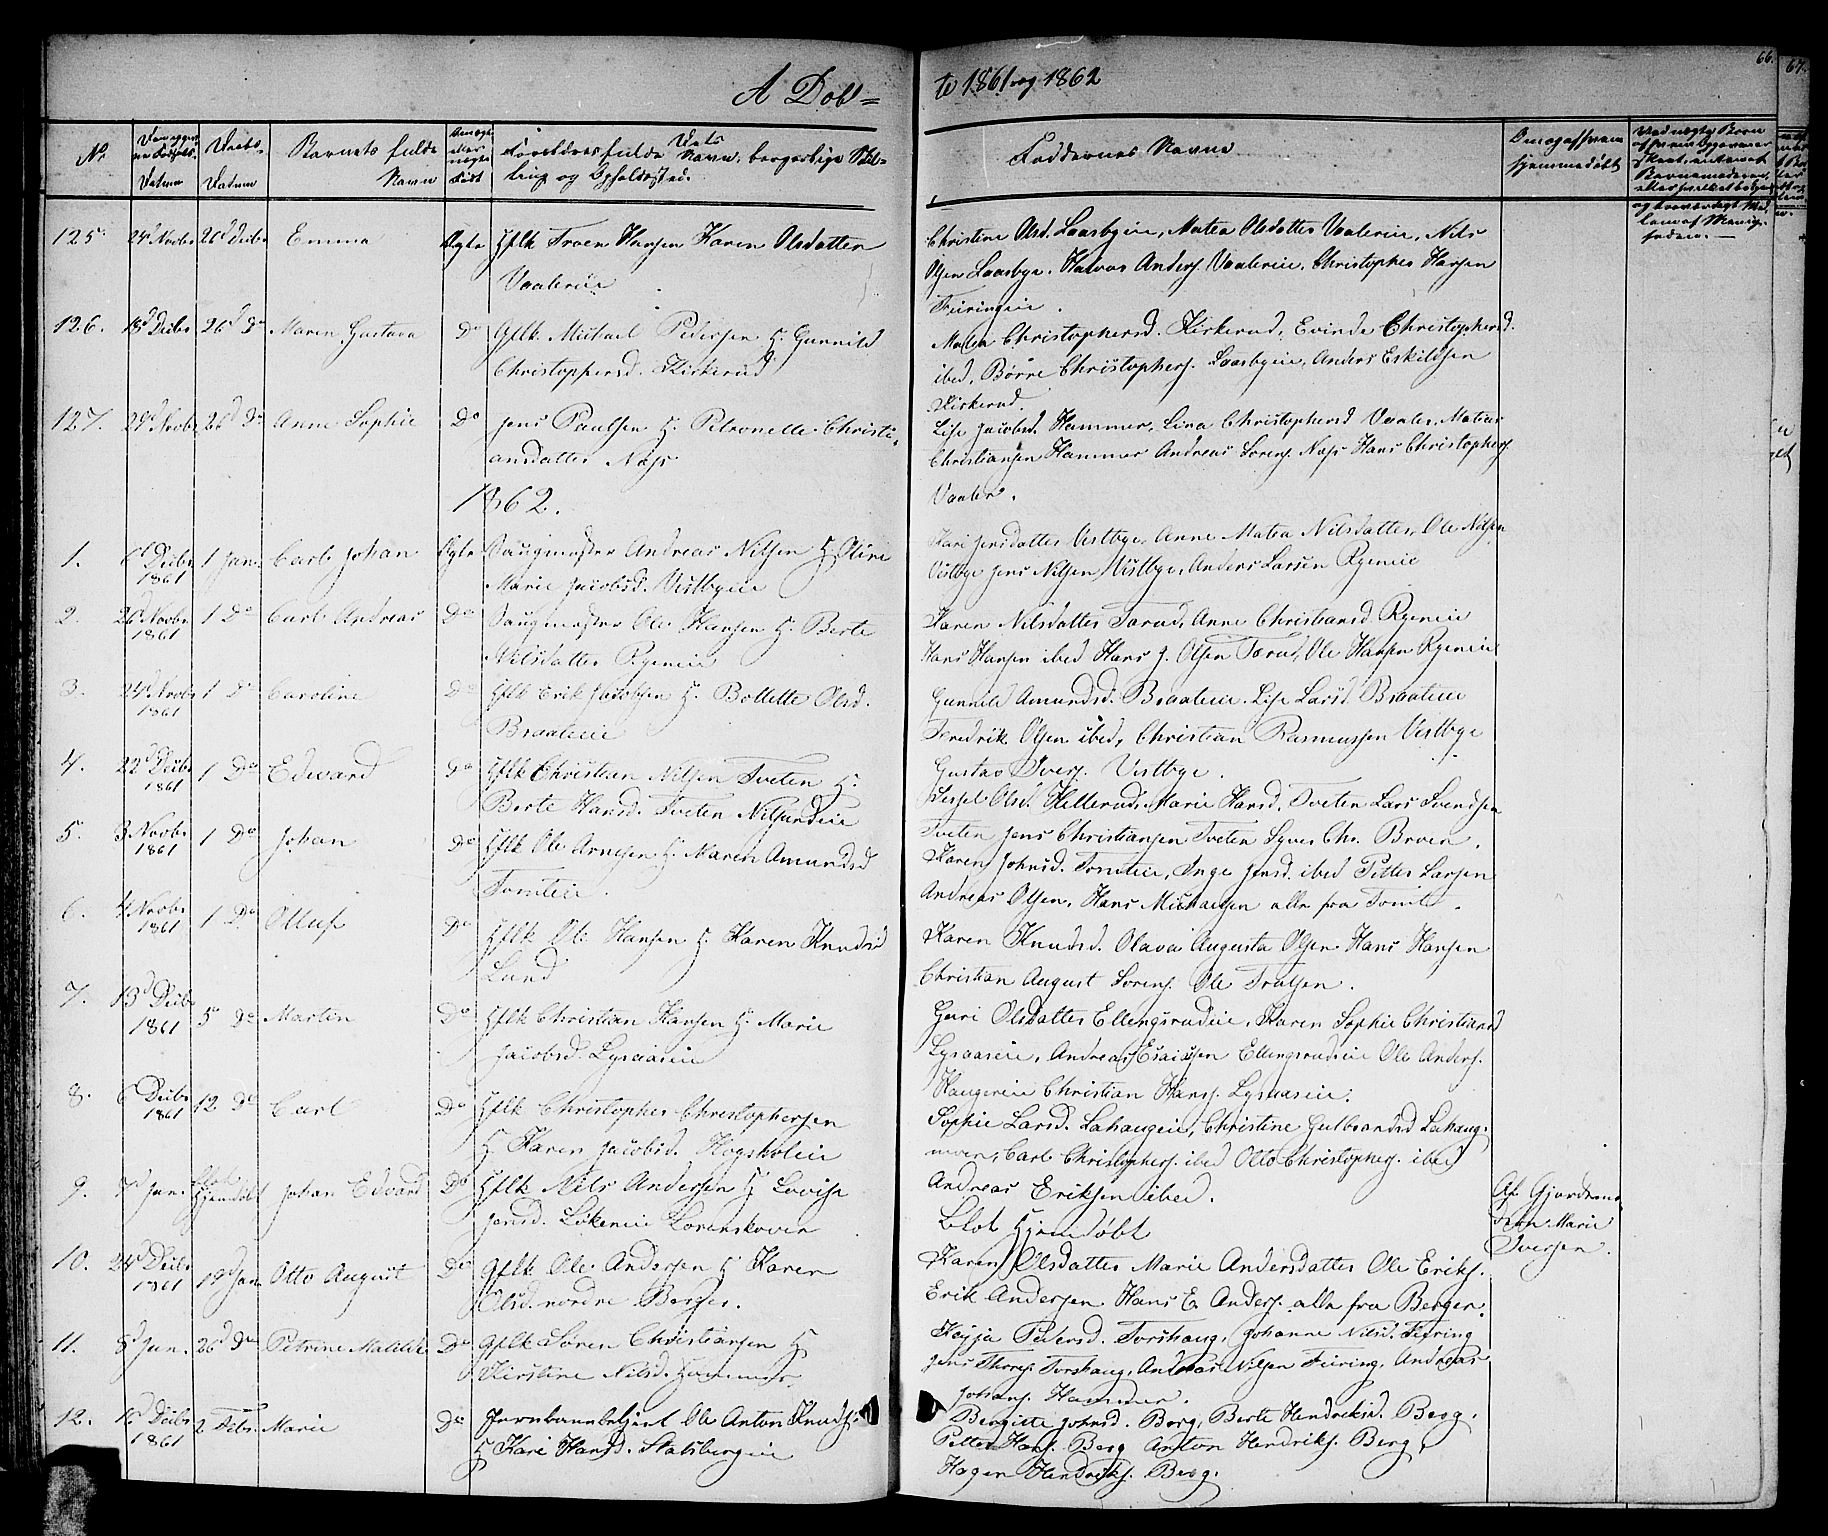 A Døb=
te 1861 og 1862
66.
67.
No
Datum
Daabs-
Datum
Barnets fulde
Navn
Forældres fulde Navn, borgerlige Stil-
ling og Opholdssted.
Faddernes Navne
hjemmedøbt
125. 24d Novbr 26d Decbr Emma Ægte Hflk Hansen Karen Olsdatter
Vaalereie
Christine Olsd. Laasbyeie, Matea Olsdatter Vaalereie, Nils
Olsen Laasbye. Halvor Anders. Vaalereie, Christopher Hansen
Feiringeie.
126. 18d Decbr 26d Do Maren Gustava Do Gflk. Michael Pedersen H. Gunnild
Christophersd. Kirkerud
Matea Christophersd. Kirkerud, Christophersd.
ibed, Børre Christophers. Laasbyeie, Anders Eskildsen
Kirkerud.
127. 29d Novbr 26d Do Anne Sophie Do Jens Paulsen H. Petronelle Christi-
ansdatter Næss
Lise Jacobsd. Hammer, Lina Christophersd Vaaler, Matias
Christiansen Hammer Andreas Sørens. Næss Hans Christophers.
Vaaler.
1862.
1. 6d Decbr 1861 1 Jan. Carl Johan Ægte Saugmester Andreas Nilsen H. Oline
Marie Jacobsd. Vestbyeie
Kari Jensdatter Vestbye, Anne Matea Nilsdatter, Ole Nilsen
Vestbye Jens Nilsen Vestbye, Anders Larsen Ryeneie
2. 26d Novbr 1861 1 Do Carl Andreas Do Saugmester Ole Hansen H. Berte
Nilsdatter Ryeneie
Karen Nilsdatter Tærud, Anne Christiansd. Ryeneie
Hans Hansen ibed Hans J. Olsen Tærud, Ole Hansen Ryeneie
3. 24d Novbr 1861 1 Do Caroline Do Hflk Erik Jacobsen H. Bollette Olsd.
Braateeie
Gunnild Amundsd. Braateeie. Lise Larsd. Braateeie
Fredrik Olsen ibed, Christian Rasmussen Vestbye
Gustav Ivers. Vestbye.
4. 22d Decbr 1861 1 Do Edvard Do Hflk Christian Nilsen Tveten H.
Berte Hansd. Tveten
Olsd. Hillerud, Marie Hansd. Tveten Lars Svendsen
Tveten Jens Christiansen Tveten Syver Chr. Broen.
5. 3 Novbr 1861 1 Do Johan Do Hflk Ole Arnesen H. Maren Amundsd
Tomteie.
Karen Johnsd. Tomteie, Inge Jensd. ibed Petter Larsen
Andreas Olsen, Hans Michaelsen alle fra Tomte.
6. 4 Novbr 1861 1 Do Olluf Do Hflk Ole Hansen H. Karen Knudsd
Lund
Karen Knudsd. Olava Augusta Olsen Hans Hansen
Christian August Sørens. Ole Trulsen.
7. 13d Decbr 1861 5 Do Martin Do Hflk Christian Hansen H. Marie
Jacobsd. Lysaaseie
Guri Olsdatter Ellengsrudeie, Karen Sophie Christiansd
Lysaaseie, Andreas Esaissen Ellengsrudeie Ole Anders.
Haugereie Christian Hanss. Lysaaseie.
8. 6 Decbr 1861 12 Do Carl Do Hflk Christopher Christophersen
H Karen Jacobsd. Høgsholeie
Sophie Larsd. Lahaugeie, Christine Gulbrandsd Lahaug-
moen, Carl Christophers. ibed Otto Christophers. ibed
Andreas Eriksen ibed.
9. 7d Jan. blot Hjemdøbt Johan Edvard Do Hflk Nils Andersen H Lovise
Jensd. Løkeneie Lørenskoven
Blot Hjemdøbt
Af Gjordemo-
deren Marie
Iversen.
10. 24d Decbr 1861 19d Jan Otto August Do Gflk Ole Andersen H Karen
Olsd. nordre Berger.
Karen Olsdatter Marie Andersdatter Ole Eriks.
Erik Andersen Hans E. Anders. alle fra Berger.
11. 8d Jan. 26d Do Petrine Matilde Do Gflk Søren Christiansen H
Kirstine Nilsd. Hammer
Kajsa Petersd. Torshaug, Johanne Nilsd. Feiring
Jens Thors. Torshaug, Andreas Nilsen Feiring, Andreas
Johans. Hammer.
12. 1d Decbr 1861 2 Febr. Marie Do Jernbanebetjent Ole Anton Knuds.
H Kari Hansd. Stalsbergeie
Bergitte Johnsd. Berg, Berte Hendriksd. Berg.
Petter Hans. Berg Anton Hendriks. Berg,
Hagen Hendriks. Berg.